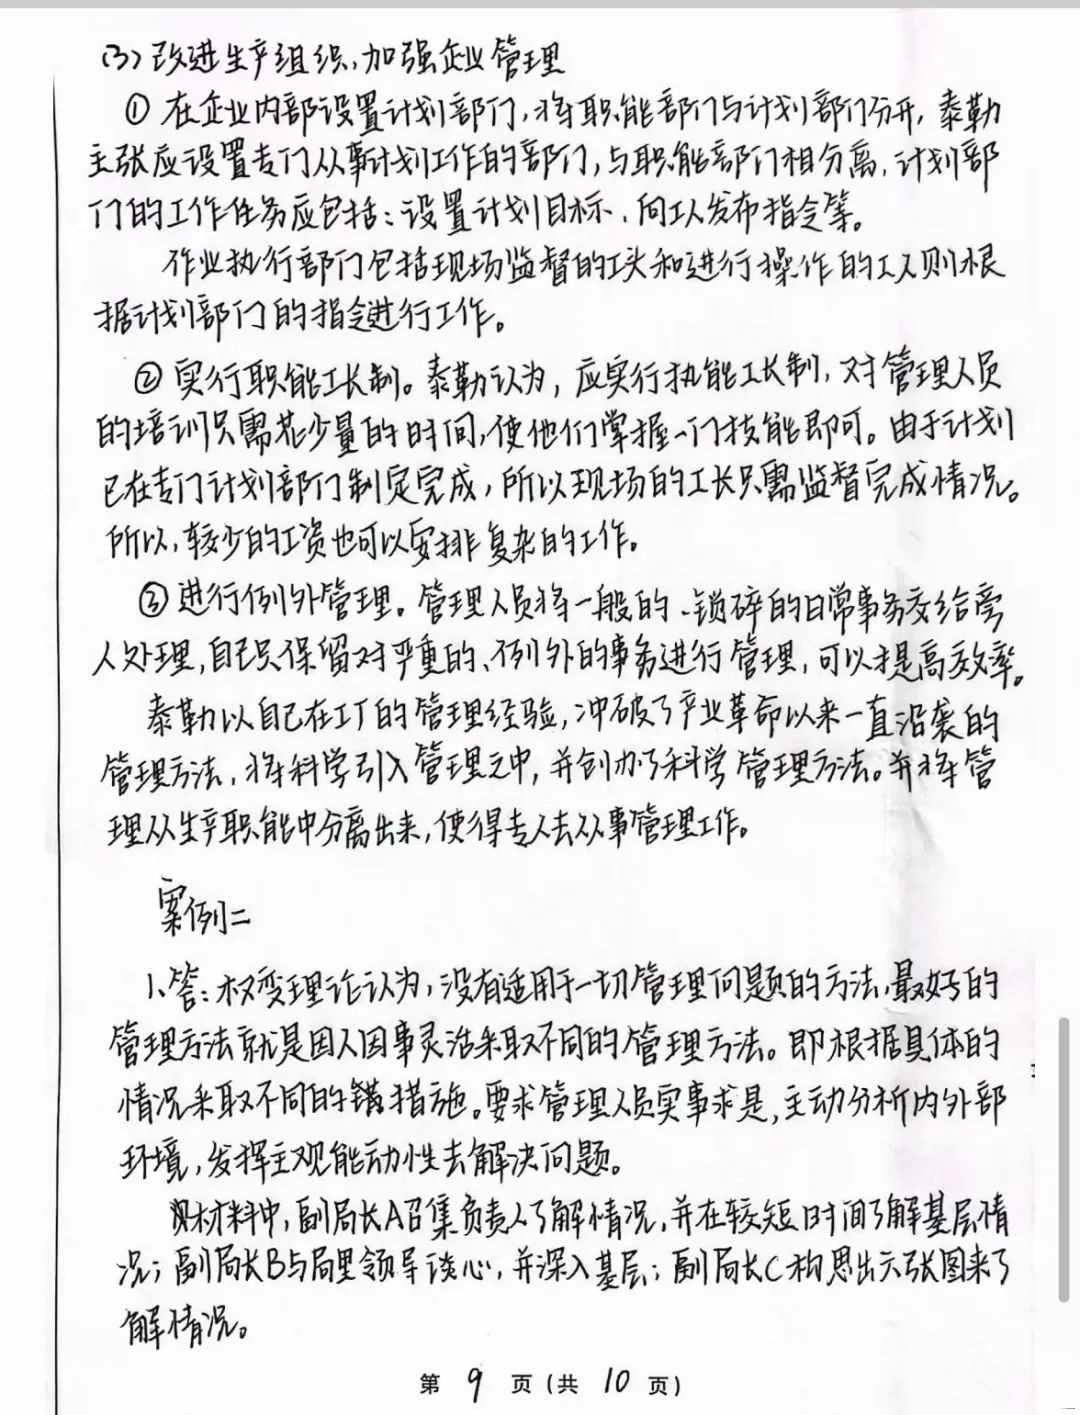 (3)改进生产组织,加强企业管理
① 在企业内部设置计划部门,将职能部门与计划部门分开,泰勒
主张应设置专门从事计划工作的部门,与职能部门相分离,计划部
门的工作任务应包括:设置计划目标、向工人发布指令等。
作业执行部门包括现场监督的工头和进行操作的工人则根
据计划部门的指令进行工作。
② 实行职能工长制。泰勒认为,应实行执能工长制,对管理人员
的培训只需花少量的时间,使他们掌握一门技能即可。由于计划
已在专门计划部门制定完成,所以现场的工长只需监督完成情况。
所以,较少的工资也可以安排复杂的工作。
③ 进行例外管理。管理人员将一般的、锁碎的日常事务交给旁
人处理,自己只保留对严重的、例外的事务进行管理,可以提高效率。
泰勒以自己在工厂的管理经验,冲破了产业革命以来一直沿袭的
管理方法,将科学引入管理之中,并创办了科学管理方法。并将管
理从生产职能中分离出来,使得专人去从事管理工作。
案例二
1、答:权变理论认为,没有适用于一切管理问题的方法,最好的
管理方法就是因人因事灵活采取不同的管理方法。即根据具体的
情况采取不同的措施。要求管理人员实事求是,主动分析内外部
环境,发挥主观能动性去解决问题。
材料中,副局长A召集负责人了解情况,并在较短时间了解基层情
况;副局长B与局里领导谈心,并深入基层;副局长C构思出六张图来了
解情况。
第 9 页(共 10 页)